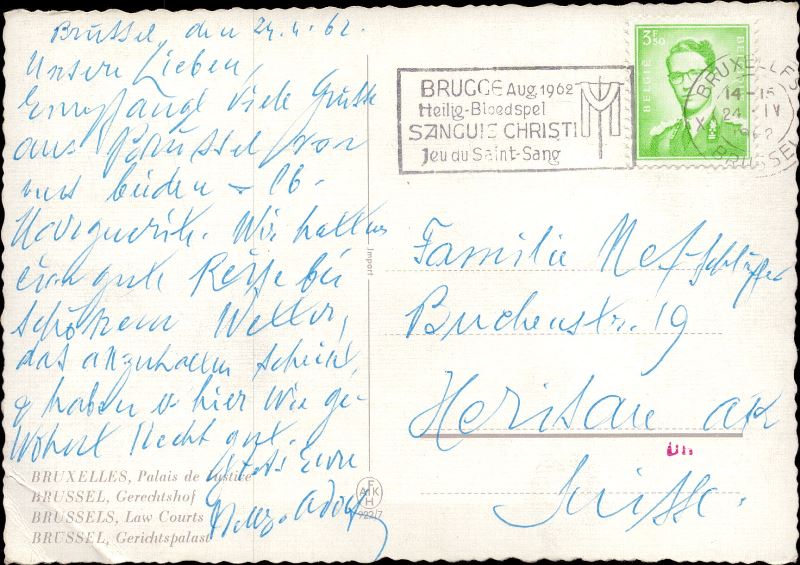 Brüssel, den 24.4.62.
Unsere Lieben,
Empfangt viele Grüsse
aus Brüssel von
uns beiden
Marguerite. Wir hatten
eine gute Reise bei
schönem Wetter,
das anzuhalten scheint,
haben hier wie ge-
wohnt recht gut.
Eure
BRUXELLES, Palais de Justice
BRUSSEL, Gerechtshof
BRUSSELS, Law Courts
BRÜSSEL, Gerichtspalast
Import
F
AIK
H
922/7
BRUGGE Aug. 1962
Heilig-Bloedspel
SANGUIS CHRISTI
Jeu du Saint-Sang
3F50
BELGIE
BELGIQUE
BRUXELLES
14-15
24 IV
1962
BRUSSEL
Familie Nef-Schläpfer
Buchenstr. 19
Herisau AR
Suisse.